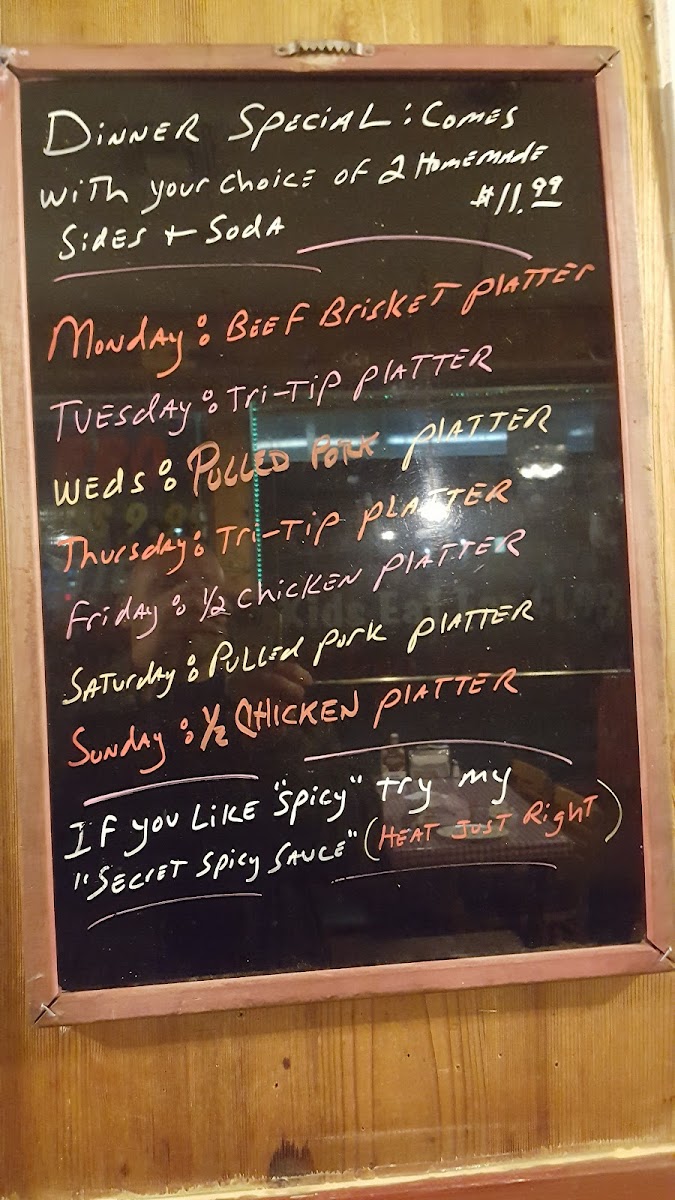 DINNER SPECIAL: COMES
WITH your CHOICE OF 2 HOMEMADE
SIDES + SODA $11.99
MONDAY: BEEF BRISKET PLATTER
TUESDAY: TRI-TIP PLATTER
WEDS: PULLED PORK PLATTER
Thursday: TRI-TIP PLATTER
FRIDAY: 1/2 CHICKEN PLATTER
SATURDAY: PULLED PORK PLATTER
SUNDAY: 1/2 CHICKEN PLATTER
IF YOU LIKE "SPICY" TRY MY
"SECRET SPICY SAUCE" (HEAT JUST RIGHT)